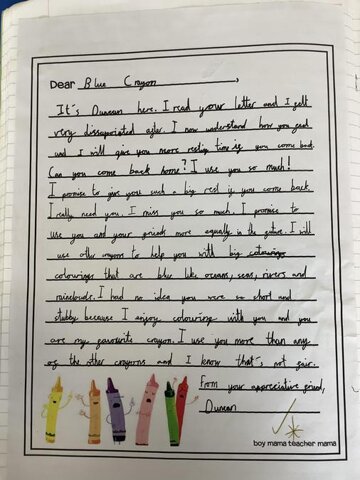 Dear Blue Crayon,
It's Duncan here. I read your letter and I felt
very dissapointed after. I now understand how you feel
and I will give you more resting time if you come back.
Can you come back home? I use you so much!
I promise to give you such a big rest if you come back.
I really need you, I miss you so much. I promise to
use you and your friends more equally in the future. I will
use other crayons to help you with big colourings
colourings that are blue like oceans, seas, rivers and
rainclouds. I had no idea you were so short and
stubby because I enjoy colouring with you and you
are my favourite crayon. I use you more than any
of the other crayons and I know that's not fair.
From your appreciative friend,
Duncan
boy mama teacher mama